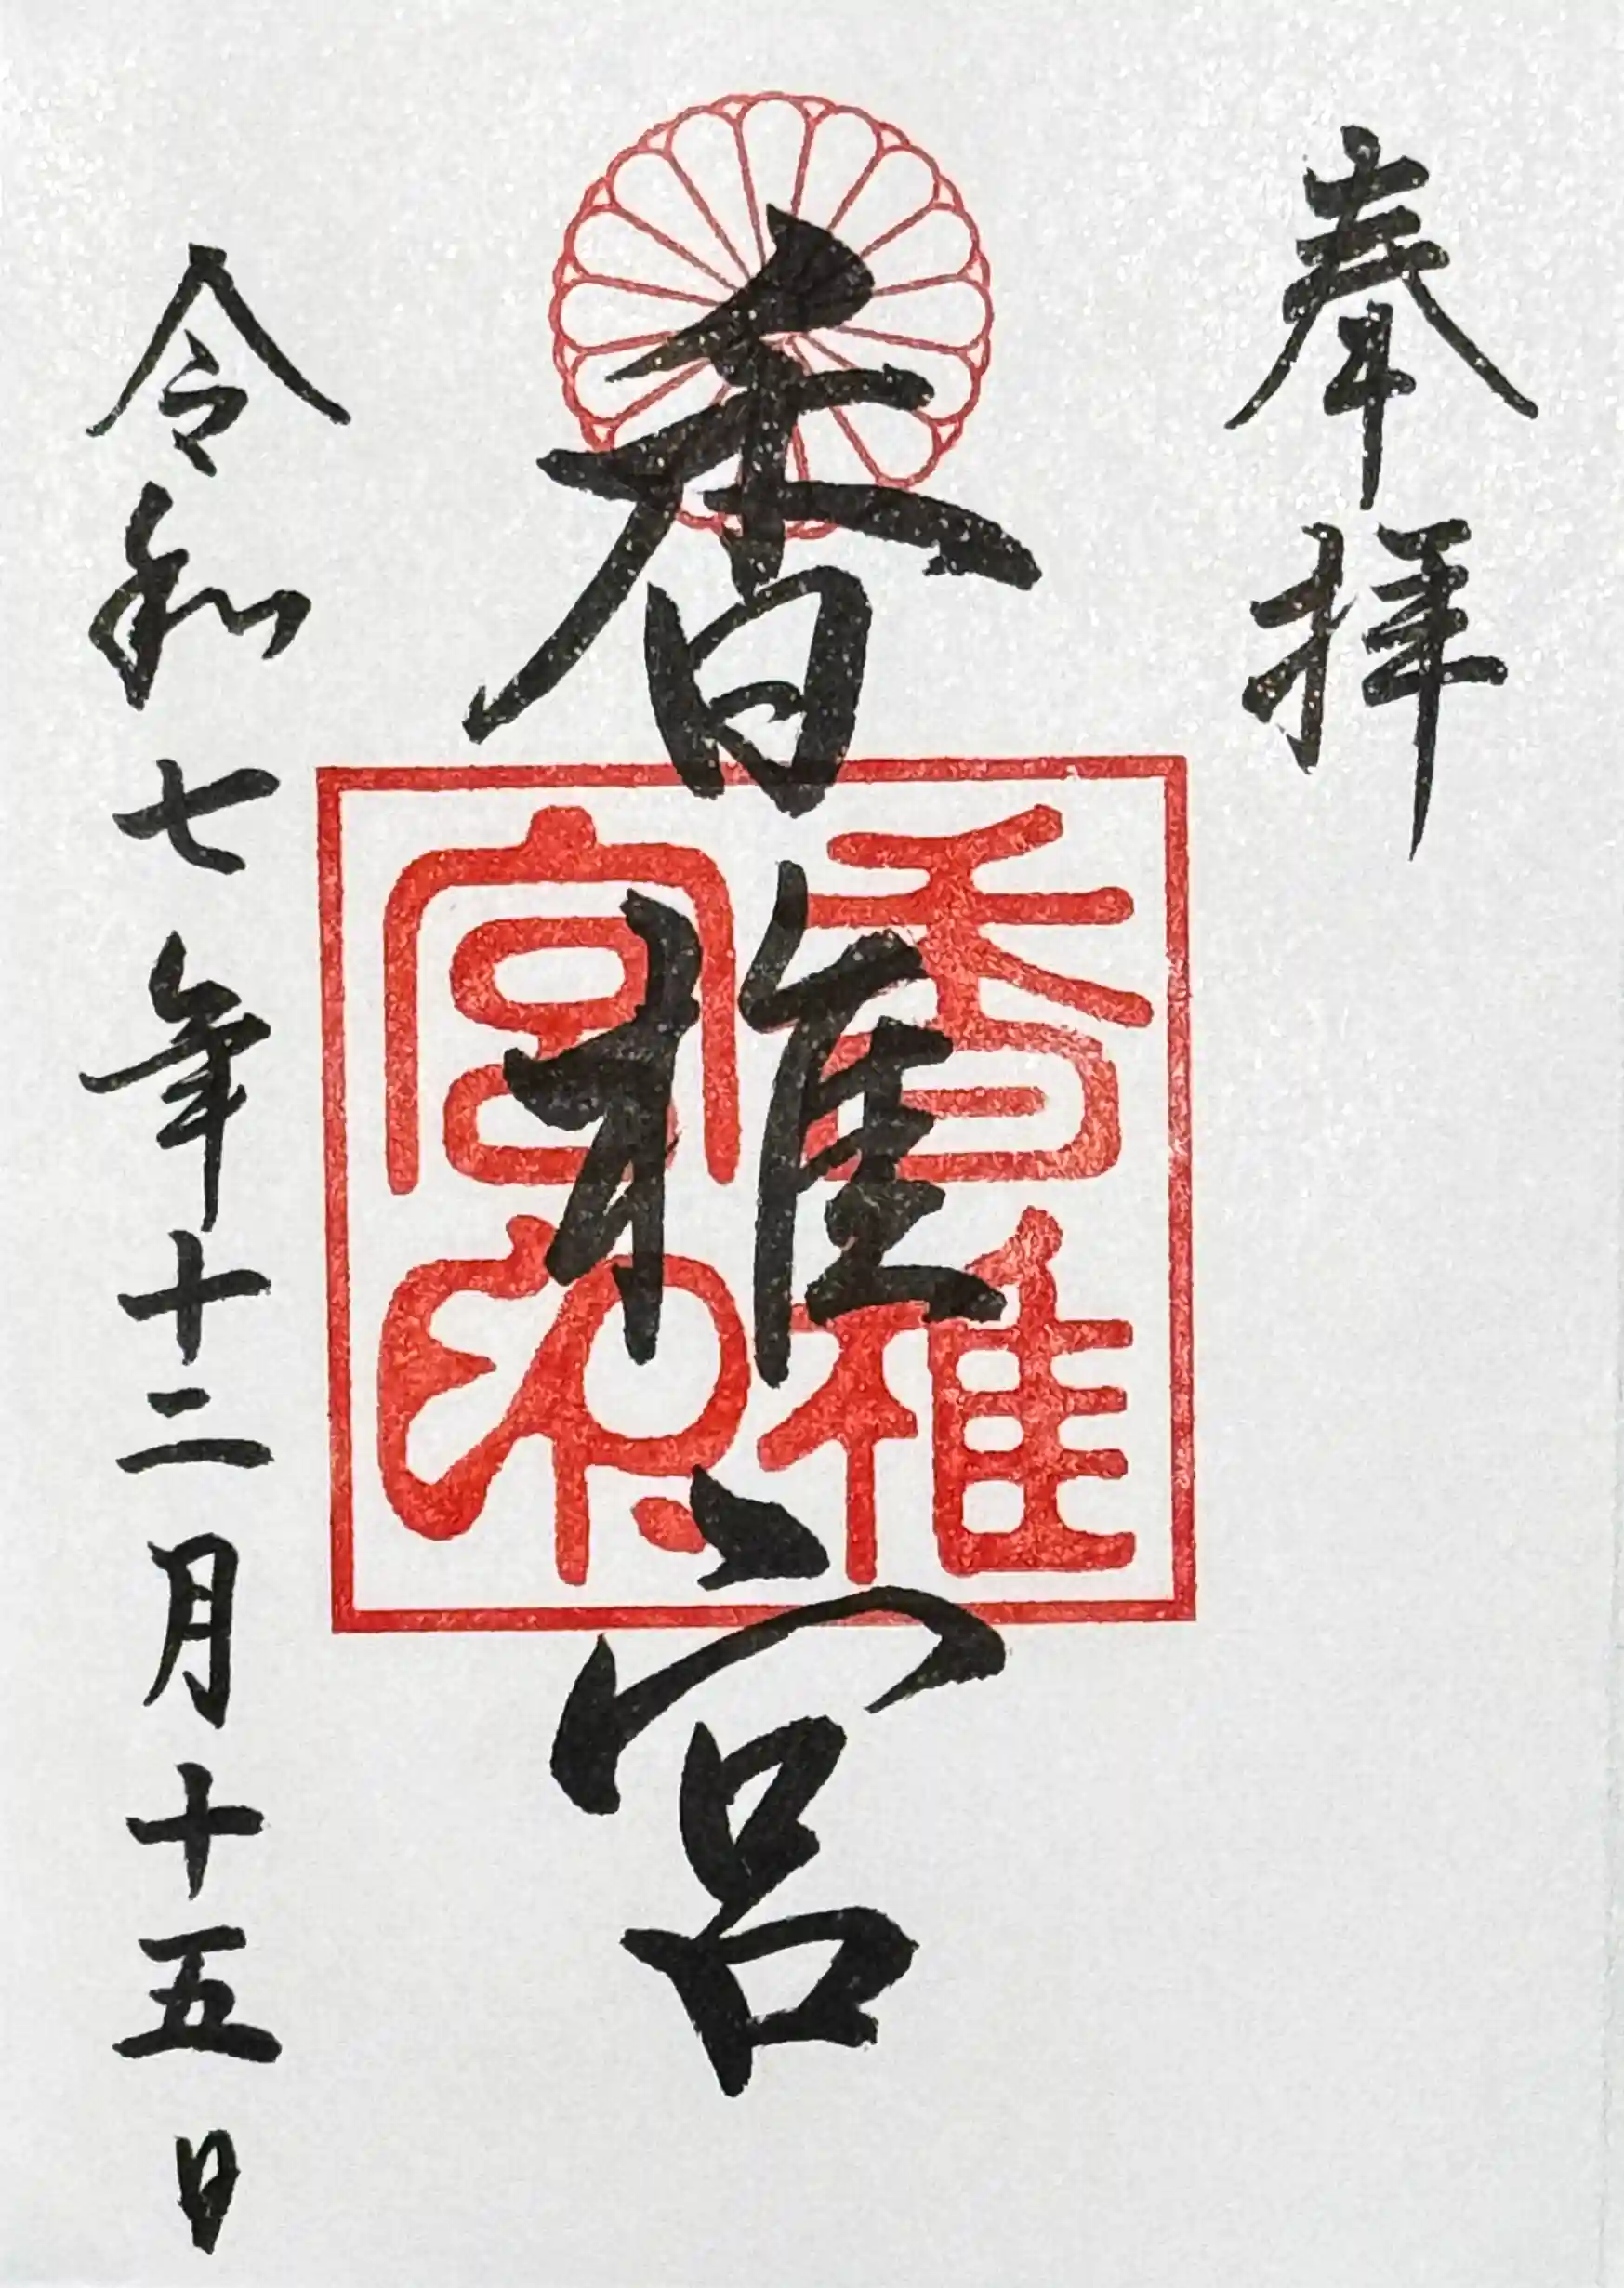 奉拝
香椎宮
香椎
宮印
令和七年十二月十五日